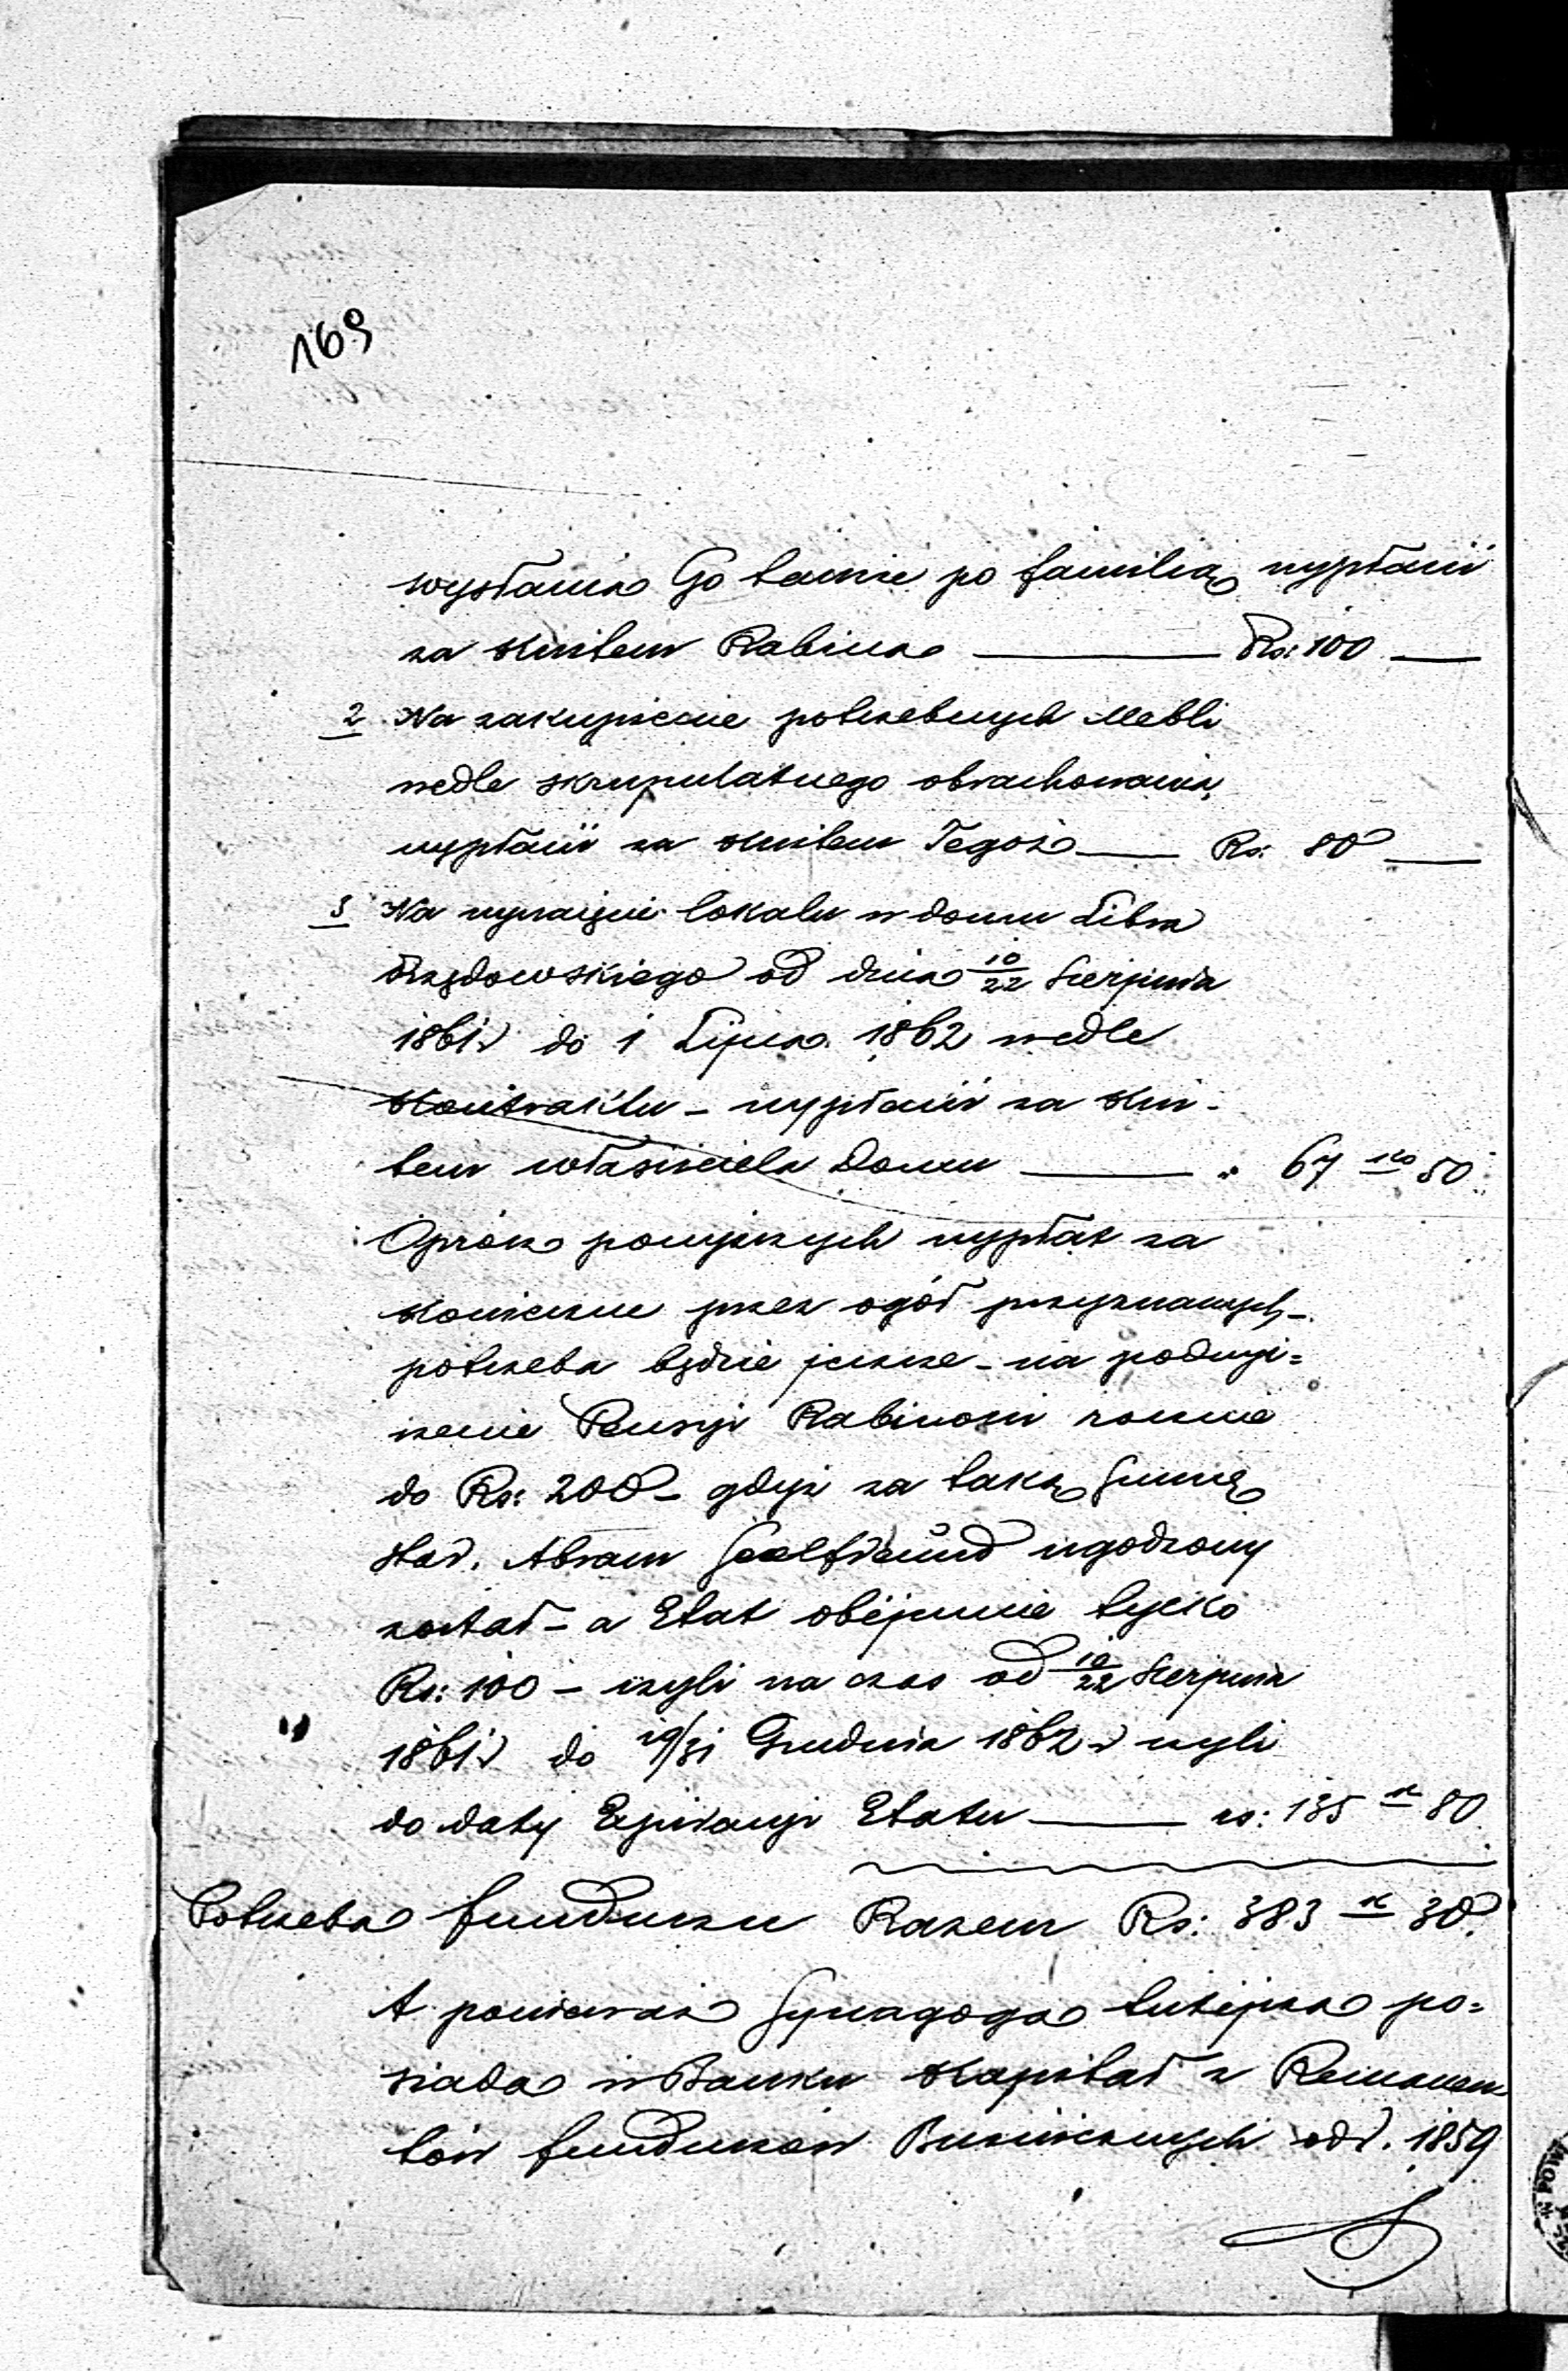 169
wysłania Go tamże po familią wypłacić
za kwitem Rabina — Rs: 100 —
2 Na zakupienie potrzebnych Mebli
wedle skrupulatnego obrachowania,
wypłacić za kwitem Tegoż — Rs: 80 —
3 Na wynajęcie lokalu w domu Libra
od dnia 10/22 Sierpnia
1861 r do 1 Lipca 1862 wedle
Kontraktu – wypłacić za kwi-
tem właściciela Domu — " 67 ko 50
Oprócz powyższych wypłat za
konieczne przez ogół przyznanych –
potrzeba będzie jeszcze – na podwyż=
szenie Pensyi Rabinowi rocznie
do Rs: 200 – gdyż za taką Summę
star. Abram ugodzony
został – a Etat obéjmuie tylko
Rs: 100 – czyli na czas od 10/22 Sierpnia
1861 r do 19/31 Grudnia 1862 r czyli
do daty Expiracyi Etatu — rs: 135 k 80
Potrzeba funduszu Razem Rs: 383 k 30.
A ponieważ Synagoga tutéjsza po=
siada w Banku Kapitał z Remanen
tów funduszów Bużniczych od r. 1859